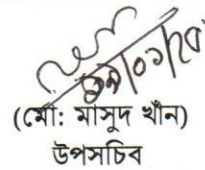 (মোঃ মাসুদ খাঁন)
উপসচিব